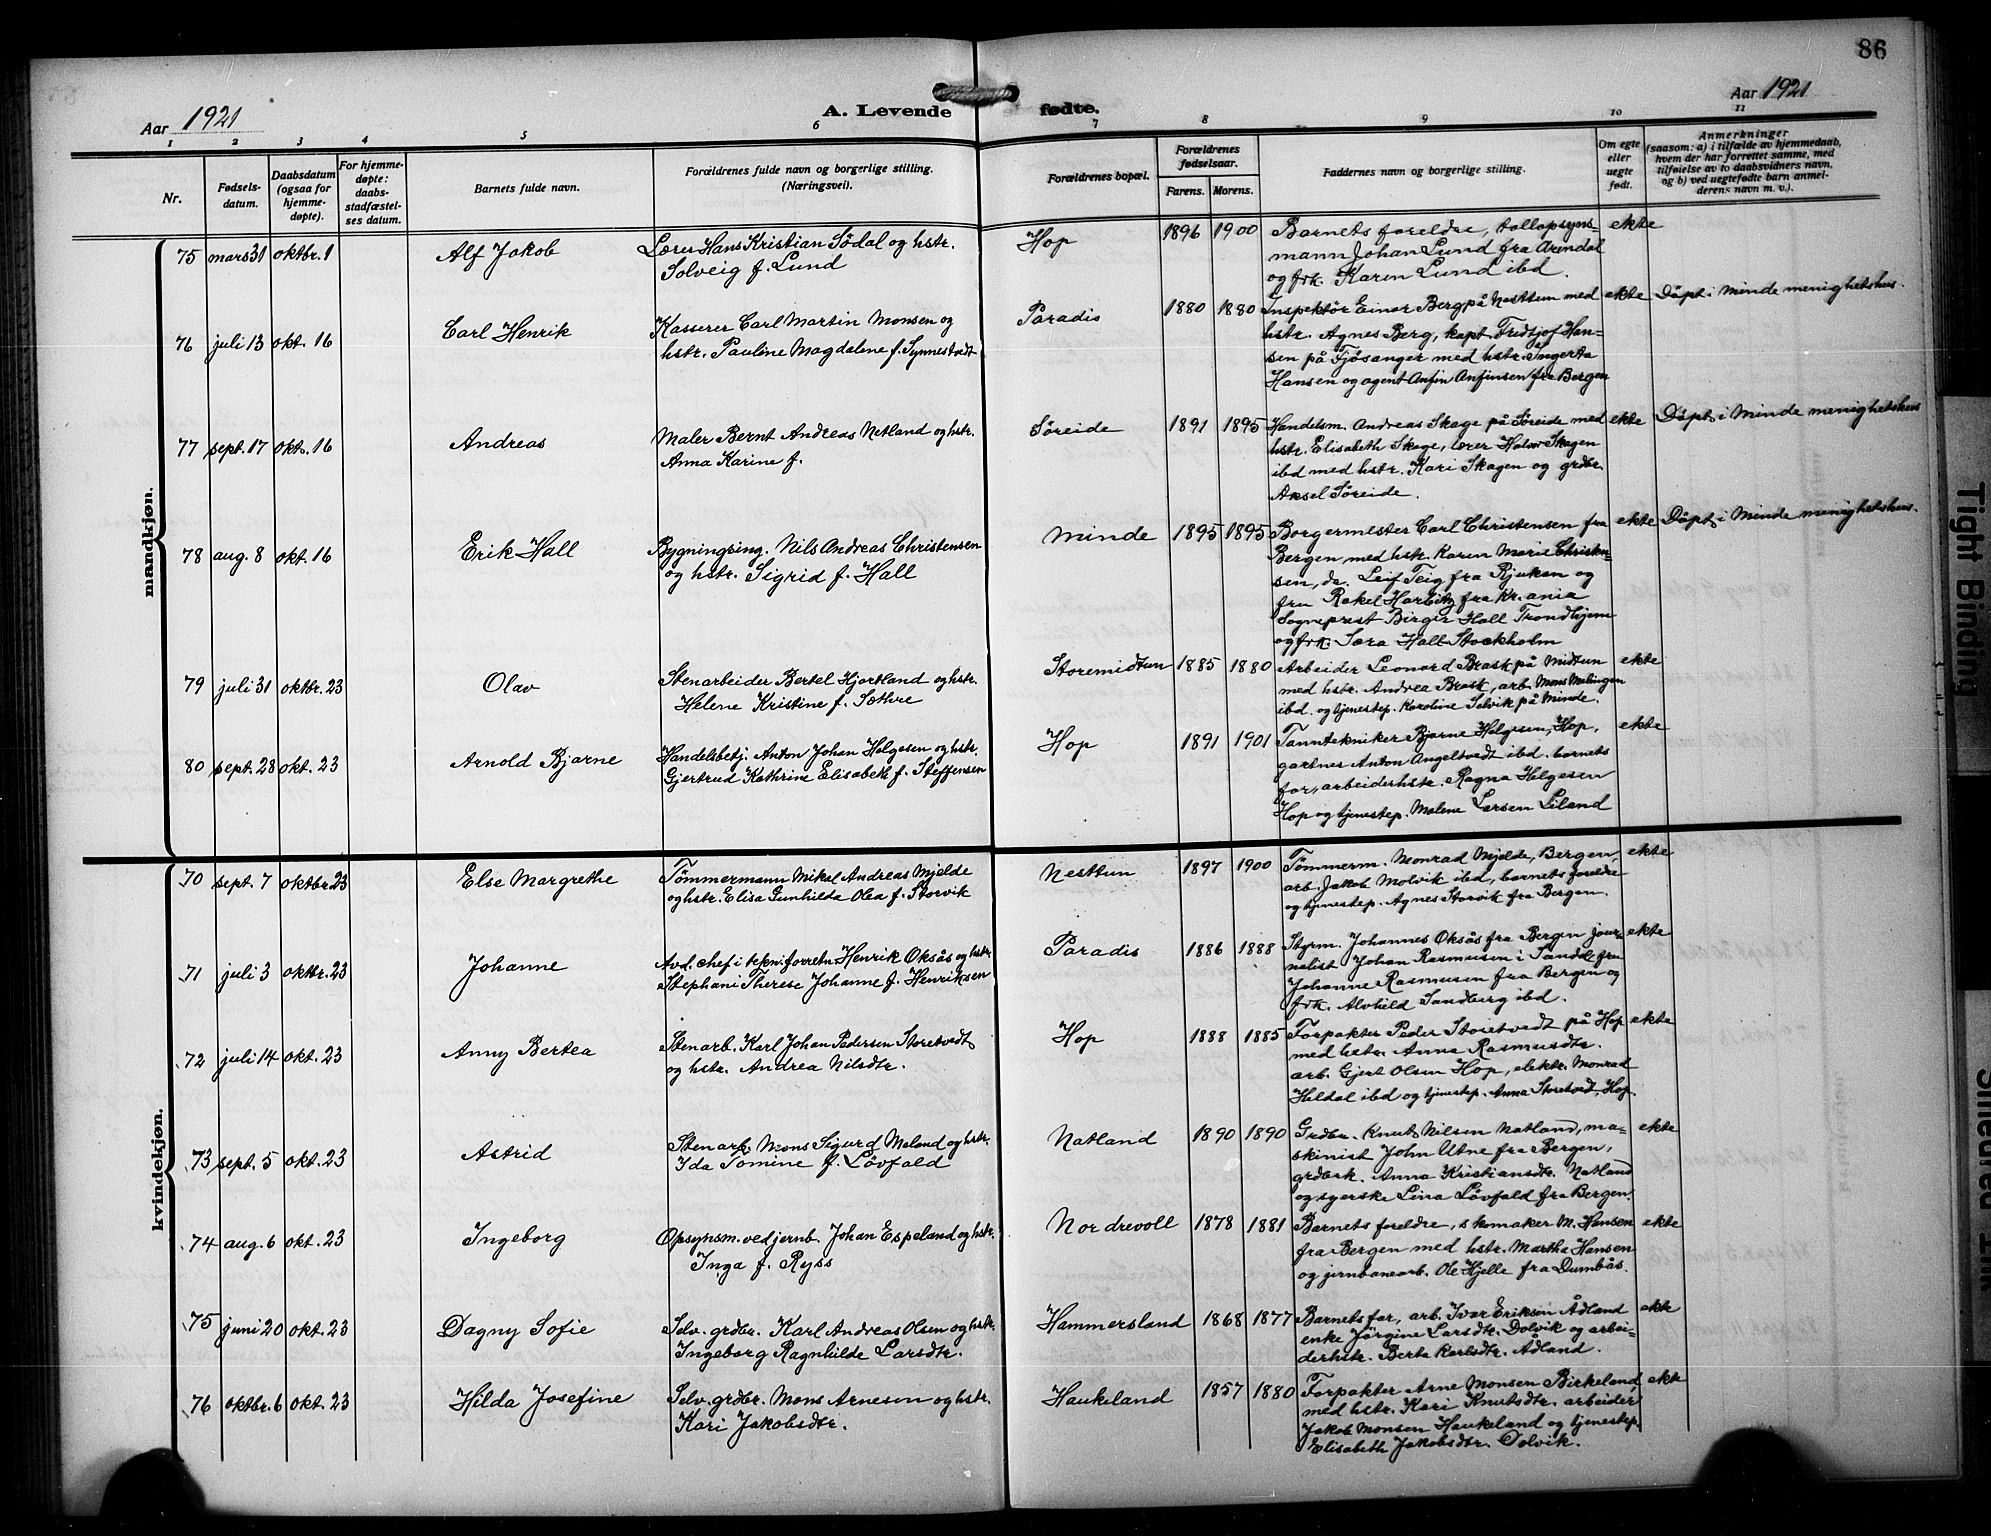 86
Aar 1921
A. Levende fødte.
Aar 1921
1 2 3 4 5 6 7 8 9 10 11
Nr.
Fødsels-
datum.
Daabsdatum
(ogsaa for
hjemme-
døpte).
For hjemme-
døpte:
daabs-
stadfæstel-
ses datum.
Barnets fulde navn.
Forældrenes fulde navn og borgerlige stilling.
(Næringsvei).
Forældrenes bopæl.
Forældrenes
fødselsaar.
Farens. Morens.
Faddernes navn og borgerlige stilling.
Om egte
eller
uegte
født.
Anmerkninger
(saasom: a) i tilfælde av hjemmedaab,
hvem der har forrettet samme, med
tilføielse av to daabsvidners navn,
og b) ved uegtefødte barn anmel-
derens navn m. v.).
mandkjøn.
75 mars 31 oktbr. 1 Alf Jakob
Lærer Hans Kristian Södal og hstr.
Solveig f. Lund
Hop 1896 1900
Barnets foreldre, tollopsyns-
mann Johan Lund fra Arendal
og frk. Karen Lund ibd.
ekte
76 juli 13 okt. 16 Carl Henrik
Kasserer Carl Martin Monsen og
hstr. Pauline Magdalene f. Synnestvedt
Paradis 1880 1880
Inspektör Einar Berg på Nesttun med
hstr. Agnes Berg, kapt. Fridtjof Han-
sen på Fjösanger med hstr. Ingerta
Hansen og agent Anfin Anfinsen fra Bergen
ekte
Döpt i Minde menighetshus.
77 sept. 17 okt. 16 Andreas
Maler Bernt Andreas Netland og hstr.
Anna Karine f.
Söreide 1891 1895
Handelsm. Andreas Skage på Söreide med
hstr. Elisabeth Skage, lærer Halvor Skagen
ibd med hstr. Kari Skagen og grdbr.
Aksel Söreide.
ekte
Döpt i Minde menighetshus
78 aug. 8 okt. 16 Erik Hall
Bygningsing. Nils Andreas Christensen
og hstr. Sigrid f. Hall
Minde 1895 1895
Borgermester Carl Christensen fra
Bergen med hstr. Karen Marie Christen-
sen, dr. Leif Teig fra Rjukan og
fru Rakel Harbitz fra Kr.ania
Sogneprest Birger Hall Trondhjem
og frk. Sara Hall Stockholm
ekte
Döpt i Minde menighetshus.
79 juli 31 oktbr. 23 Olav
Stenarbeider Bertel Hjortland og hstr.
Helene Kristine f. Sæthre
Storemidtun 1885 1880
Arbeider Leonard Brask på Midtun
med hstr. Andrea Brask, arb. Mons Melingen
ibd. og tjenestep. Karoline Selvik på Minde.
ekte
80 sept. 28 okt. 23 Arnold Bjarne
Handelsbetj. Anton Johan Helgesen og hstr.
Gjertrud Kathrine Elisabeth f. Steffensen
Hop 1891 1901
Tanntekniker Bjarne Helgesen, Hop,
gartnes Anton Angeltvedt ibd. barnets
far, arbeiderhstr. Ragna Helgesen
Hop og tjenestep. Malene Larsen Liland
ekte
kvindekjøn.
70 sept. 7 oktbr. 23 Else Margrethe
Tömmermann Mikal Andreas Mjelde
og hstr. Elisa Gunhilda Olea f. Storvik
Nesttun 1897 1900
Tömmerm. Monrad Mjelde, Bergen,
arb. Jakob Molvik ibd, barnets foreldre
og tjenestep. Agnes Storvik fra Bergen.
ekte
71 juli 3 oktbr. 23 Johanne
Avd. chef i tekn. forretn. Henrik Oksås og hstr.
Stephani Therese Johanne f. Henriksen
Paradis 1886 1888
Styrm. Johannes Oksås fra Bergen jour-
nalist Johan Rasmusen i fru
Johanne Rasmusen fra Bergen og
frk. Alvhild Sandberg ibd.
ekte
72 juli 14 okt. 23 Anny Bertea
Stenarb. Karl Johan Pedersen Storetvedt
og hstr. Andrea Nilsdtr.
Hop 1888 1885
Forpakter Peder Storetvedt på Hop
med hstr. Anna Rasmusdtr.
arb. Gjert Olsen Hop, elektr. Monrad
Heldal ibd og tjenestep. Anna Storetvedt, Hop.
ekte
73 sept. 5 okt. 23 Astrid
Stenarb. Mons Sigurd Meland og hstr.
Ida Tomine f. Lövfald
Natland 1890 1890
Grdbr. Knut Nilsen Natland, ma-
skinist John Utne fra Bergen,
grdbrk. Anna Kristiansdtr. Natland
og syerske Lina Lövfald fra Bergen.
ekte
74 aug. 6 okt. 23 Ingeborg
Opsynsm. ved jernb. Johan Espeland og hstr.
Inga f. Ryss
Nordrevoll 1878 1881
Barnets foreldre, skomaker M. Hansen
fra Bergen med hstr. Martha Hansen
og jernbanearb. Ole Hjelle fra Dumbås.
ekte
75 juni 20 okt. 23 Dagny Sofie
Selv. grdbr. Karl Andreas Olsen og hstr.
Ingeborg Ragnhilde Larsdtr.
Hammersland 1868 1877
Barnets far, arb. Ivar Eriksen Ådland
enke Jörgine Larsdtr. Dolvik og arbei-
derhstr. Berta Karlsdtr. Ådland.
ekte
76 oktbr. 6 okt. 23 Hilda Josefine
Selv. grdbr. Mons Arnesen og hstr.
Kari Jakobsdtr.
Haukeland 1857 1880
Forpakter Arne Monsen Birkeland
med hstr. Kari Knutsdtr. arbeider
Jakob Monsen Haukeland og tjenestep.
Elisabeth Jakobsdtr. Dolvik.
ekte
Tight Binding